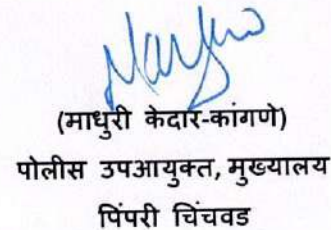 (माधुरी केदारे-कांगणे)
पोलीस उपआयुक्त, मुख्यालय
पिंपरी चिंचवड